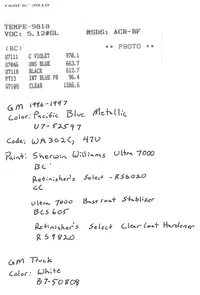 TEMPE-9818
VOC: 5.12#GL MSDS: ACR-BF
(BC) ** PHOTO **
U7111 C VIOLET 978.1
U7046 UNS BLUE 663.7
U7118 BLACK 612.7
PT13 INT BLUE PR 56.4
U7109 CLEAR 1286.6
GM 1996-1997
Color: Pacific Blue Metallic
U7-52597
Code: WA302C, 47U
Paint: Sherwin Williams Ultra 7000
BC
Refinisher's Select - RS6020
CC
Ultra 7000 Basecoat Stablizer
BCS605
Refinisher's Select Clear Coat Hardener
RS9820
GM Truck
Color: White
B7-50808